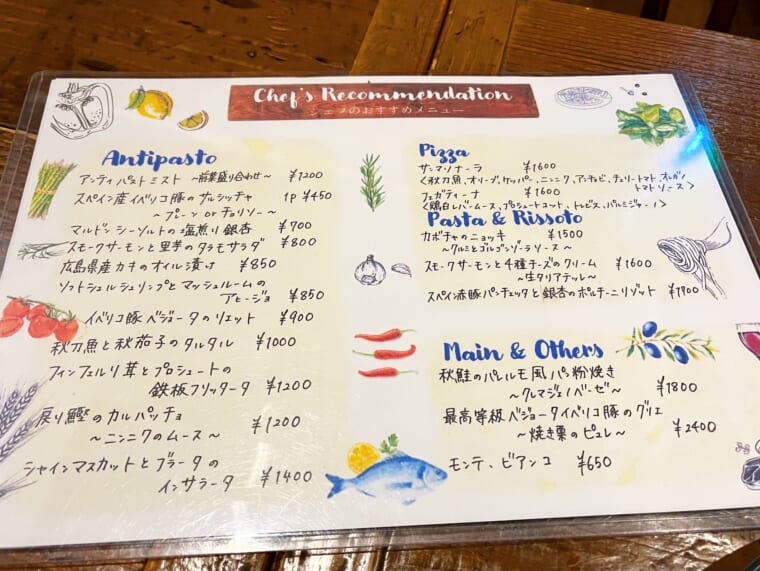 Chef's Recommendation
シェフのおすすめメニュー
Antipasto
アンティパストミスト ～前菜盛り合わせ～ ¥1200
スペイン産イベリコ豚のサルシッチャ 1p ¥450
～プレーン or チョリソー～
マルドンシーソルトの塩煎り銀杏 ¥700
スモークサーモンと里芋のタラモサラダ ¥800
広島県産カキのオイル漬け ¥850
ソフトシェルシュリンプとマッシュルームの
アヒージョ ¥850
イベリコ豚ベジョータのリエット ¥900
秋刀魚と秋茄子のタルタル ¥1000
フィンフェルリ茸とプロシュートの
鉄板フリッタータ ¥1200
戻り鰹のカルパッチョ
～ニンニクのムース～ ¥1200
シャインマスカットとブラータの
インサラータ ¥1400
Pizza
サンマリナーラ ¥1600
〈秋刀魚、オリーブ、ケッパー、ニンニク、アンチョビ、チェリートマト、オレガノ
トマトソース〉
フェガティーナ ¥1600
〈鶏白レバームース、プロシュートコット、トレビス、パルミジャーノ〉
Pasta & Rissoto
カボチャのニョッキ ¥1500
～クルミとゴルゴンゾーラソース～
スモークサーモンと4種チーズのクリーム ¥1600
～生タリアテッレ～
スペイン赤豚パンチェッタと銀杏のポルチーニリゾット ¥1900
Main & Others
秋鮭のパレルモ風パン粉焼き
～クレマジェノベーゼ～ ¥1800
最高等級ベジョータイベリコ豚のグリエ
～焼き栗のピュレ～ ¥2400
モンテ、ビアンコ ¥650